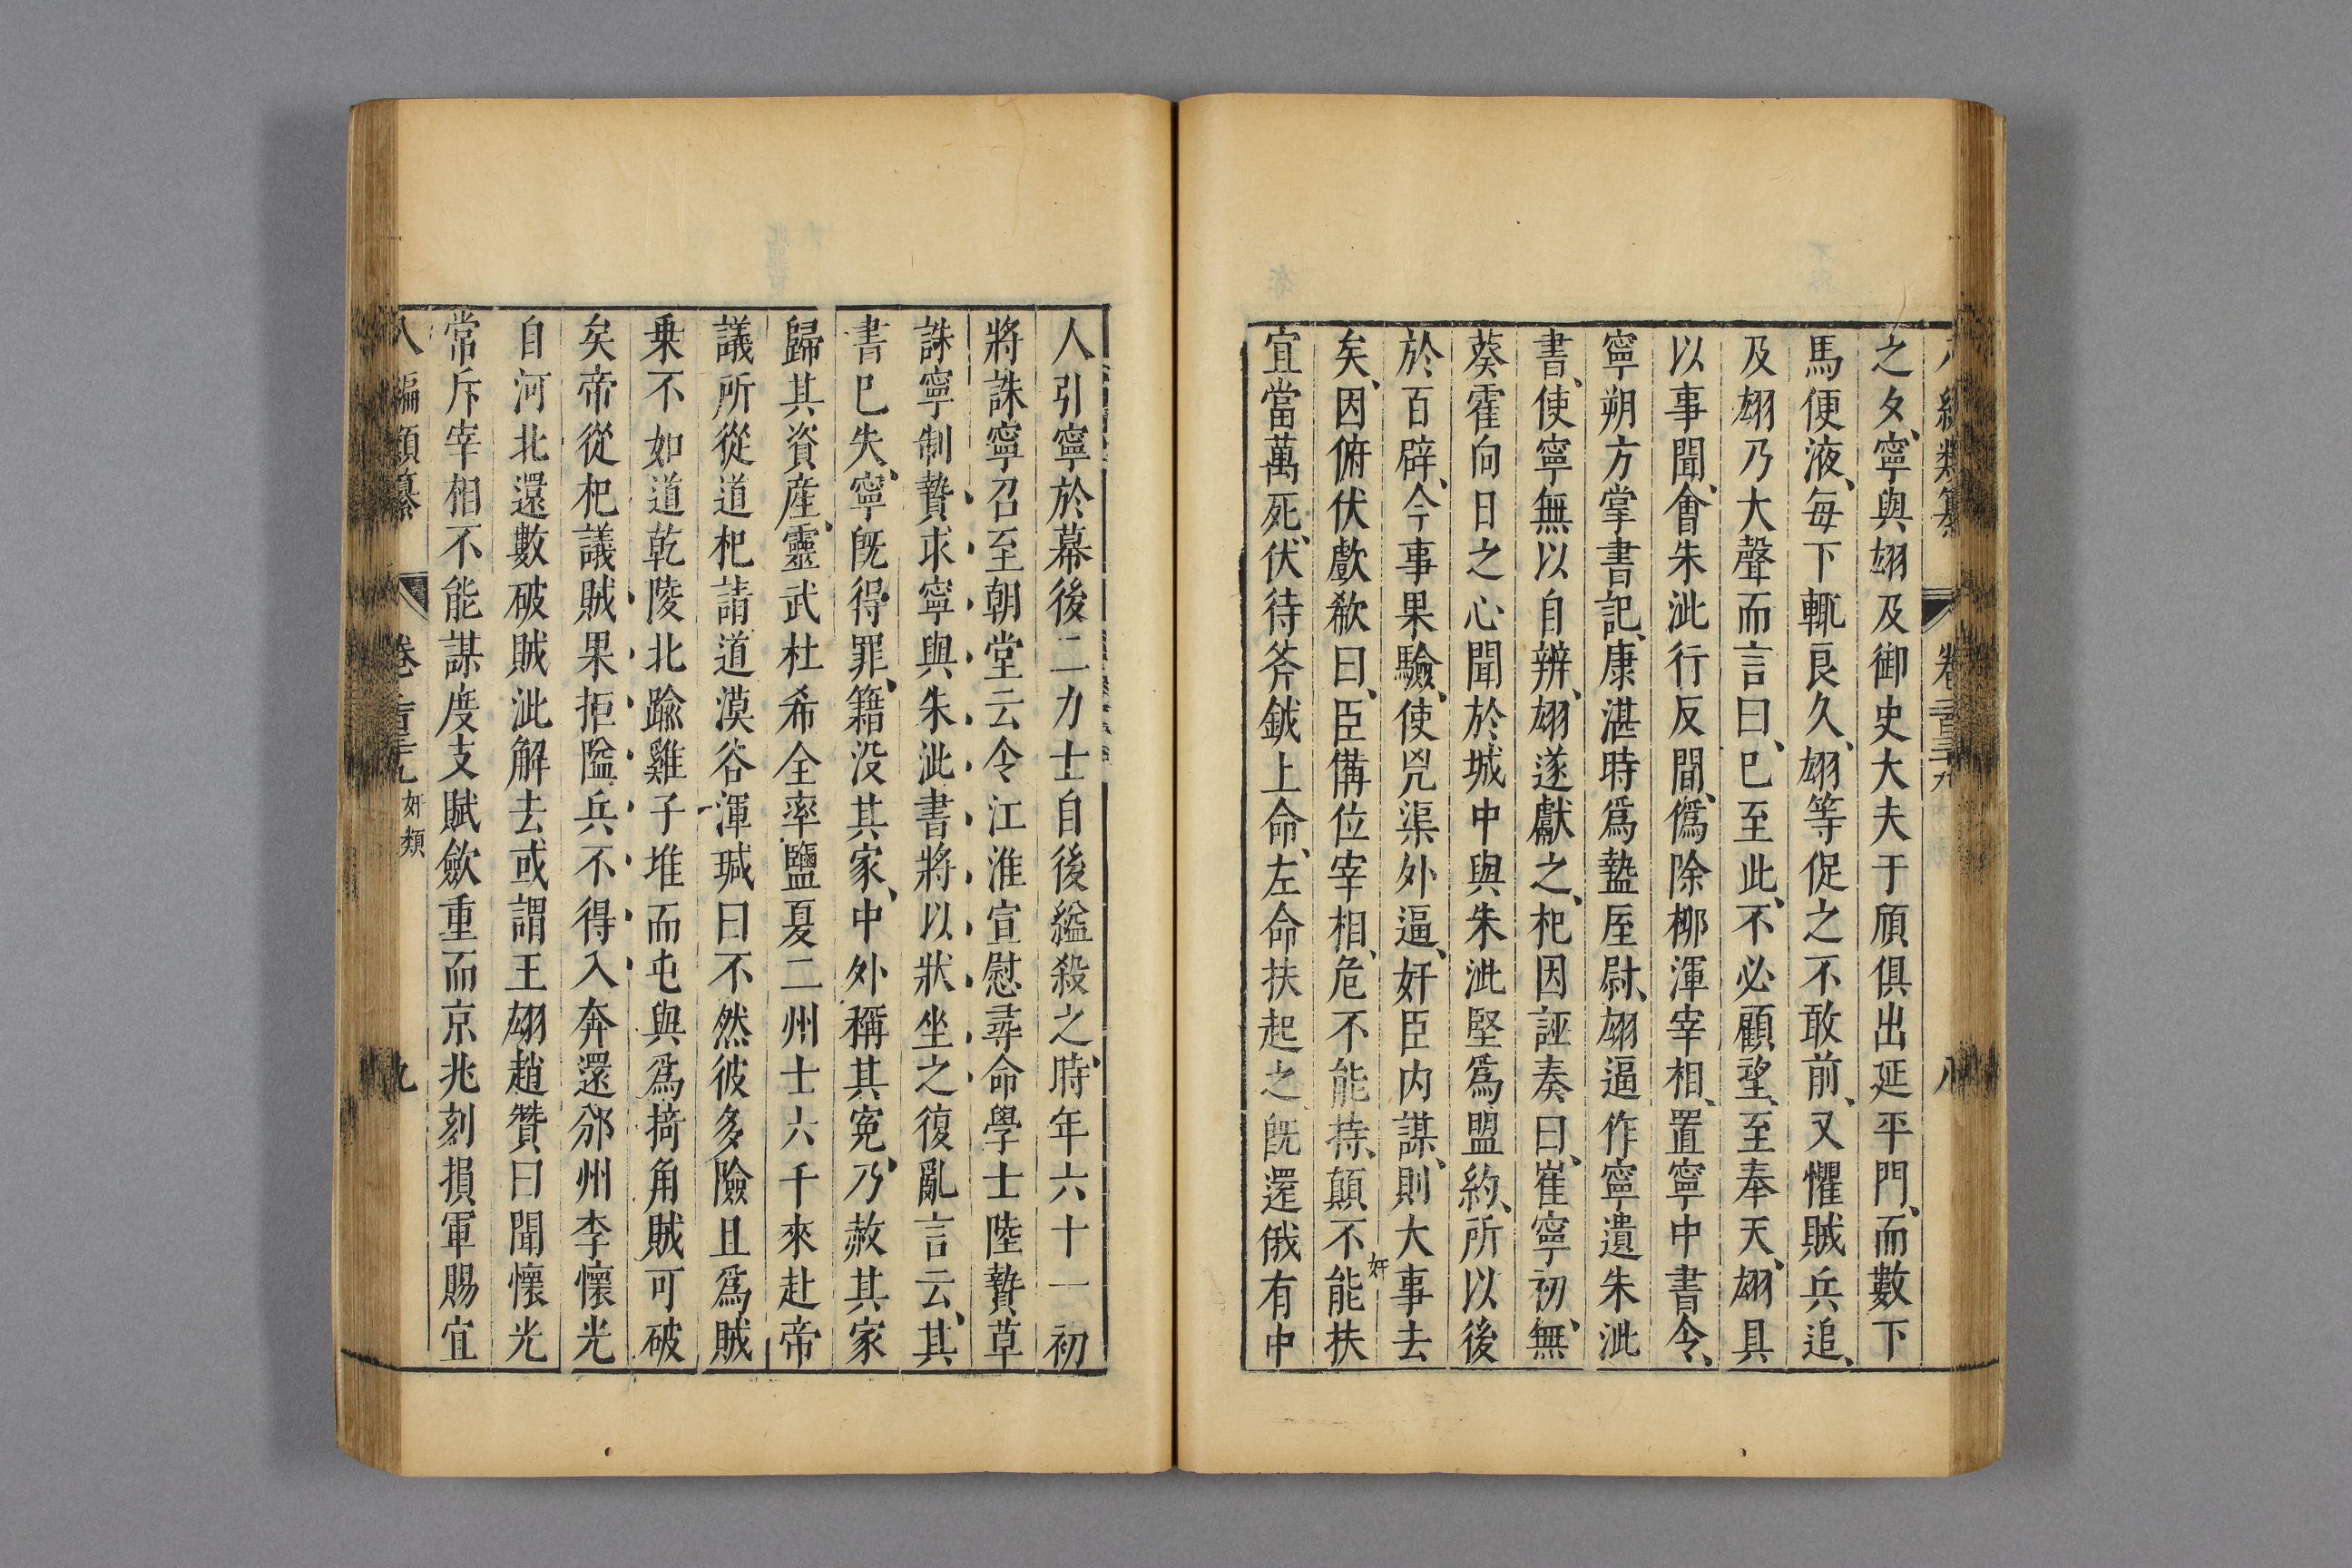 之夂、寧與翃及御史大夫于頎俱出延平門、而數下
馬便液、每下輒良久、翃等促之不敢前、又懼賊兵追、
及翃乃大聲而言曰、已至此、不必顧望、至奉天、翃具
以事聞、會朱泚行反間、僞除栁渾宰相、置寧中書令、
寧朔方掌書記、康湛時爲盩厔尉、翃逼作寧遺朱泚
書、使寧無以自辨、翃遂獻之、杞因誣奏曰、崔寧初、無
葵霍向日之心聞於城中與朱泚堅爲盟約、所以後
於百辟、今事果驗、使兇渠外逼、奸臣内謀、則大事去
矣、因俯伏歔欷曰、臣備位宰相、危不能持、顛不能扶
宜當萬死、伏待斧鉞上命、左命扶起之、旣還俄有中
奸
卷二百三十九
八
人引寧於幕後二力士自後縊殺之、時年六十一初
將誅寧召至朝堂云令江淮宣慰尋命學士陸贄草
誅寧制贄求寧與朱泚書將以狀坐之復亂言云、其
書已失、寧旣得罪、籍没其家、中外稱其寃、乃赦其家
歸其資産、靈武杜希全率鹽夏二州士六千來赴帝
議所從道杞請道漠谷渾瑊曰不然彼多險且爲賊
乗不如道乾陵北踰雞子堆而屯與爲掎角賊可破
矣帝從杞議賊果拒隘兵不得入奔還邠州李懷光
自河北還數破賊泚解去或謂王翃趙贊曰聞懷光
常斥宰相不能謀度支賦斂重而京兆刻損軍賜宜
八編類纂
卷二百三十九
奸類
九